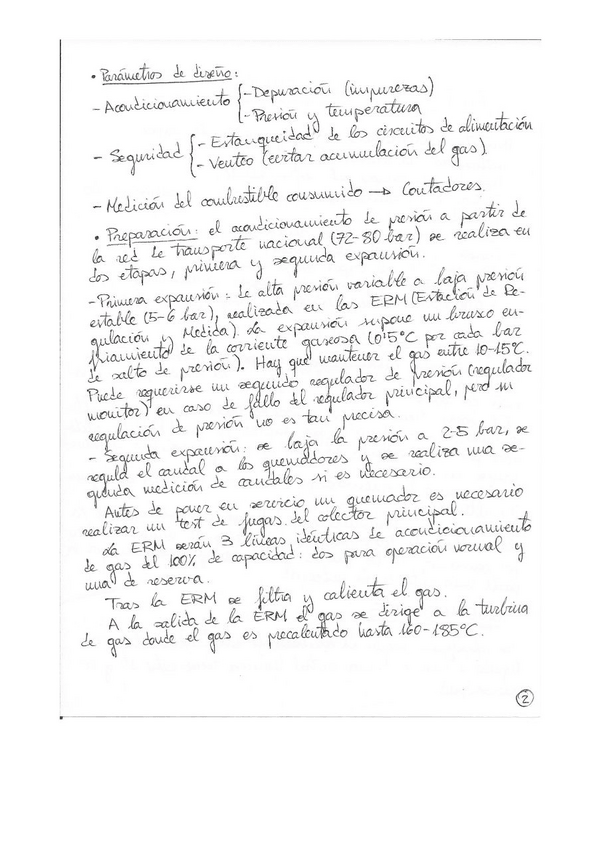 • Parámetros de diseño:
- Acondicionamiento { - Depuración (impurezas)
- Presión y temperatura
- Seguridad { - Estanqueidad de los circuitos de alimentación
- Venteo (evitar acumulación del gas).
- Medición del combustible consumido → Contadores.
• Preparación: el acondicionamiento de presión a partir de
la red de transporte nacional (72-80 bar) se realiza en
dos etapas, primera y segunda expansión.
- Primera expansión: de alta presión variable a baja presión
estable (5-6 bar), realizada en las ERM (Estación de Re-
gulación y Medida). La expansión supone un brusco en-
friamiento de la corriente gaseosa (0'5°C por cada bar
de salto de presión). Hay que mantener el gas entre 10-15°C.
Puede requerirse un segundo regulador de presión (regulador
monitor) en caso de fallo del regulador principal, pero su
regulación de presión no es tan precisa.
- Segunda expansión: se baja la presión a 2-5 bar, se
regula el caudal a los quemadores y se realiza una se-
gunda medición de caudales si es necesario.
Antes de poner en servicio un quemador es necesario
realizar un test de fugas del colector principal.
La ERM serán 3 líneas idénticas de acondicionamiento
de gas del 100% de capacidad: dos para operación normal y
una de reserva.
Tras la ERM se filtra y calienta el gas.
A la salida de la ERM el gas se dirige a la turbina
de gas donde el gas es precalentado hasta 160-185°C.
2